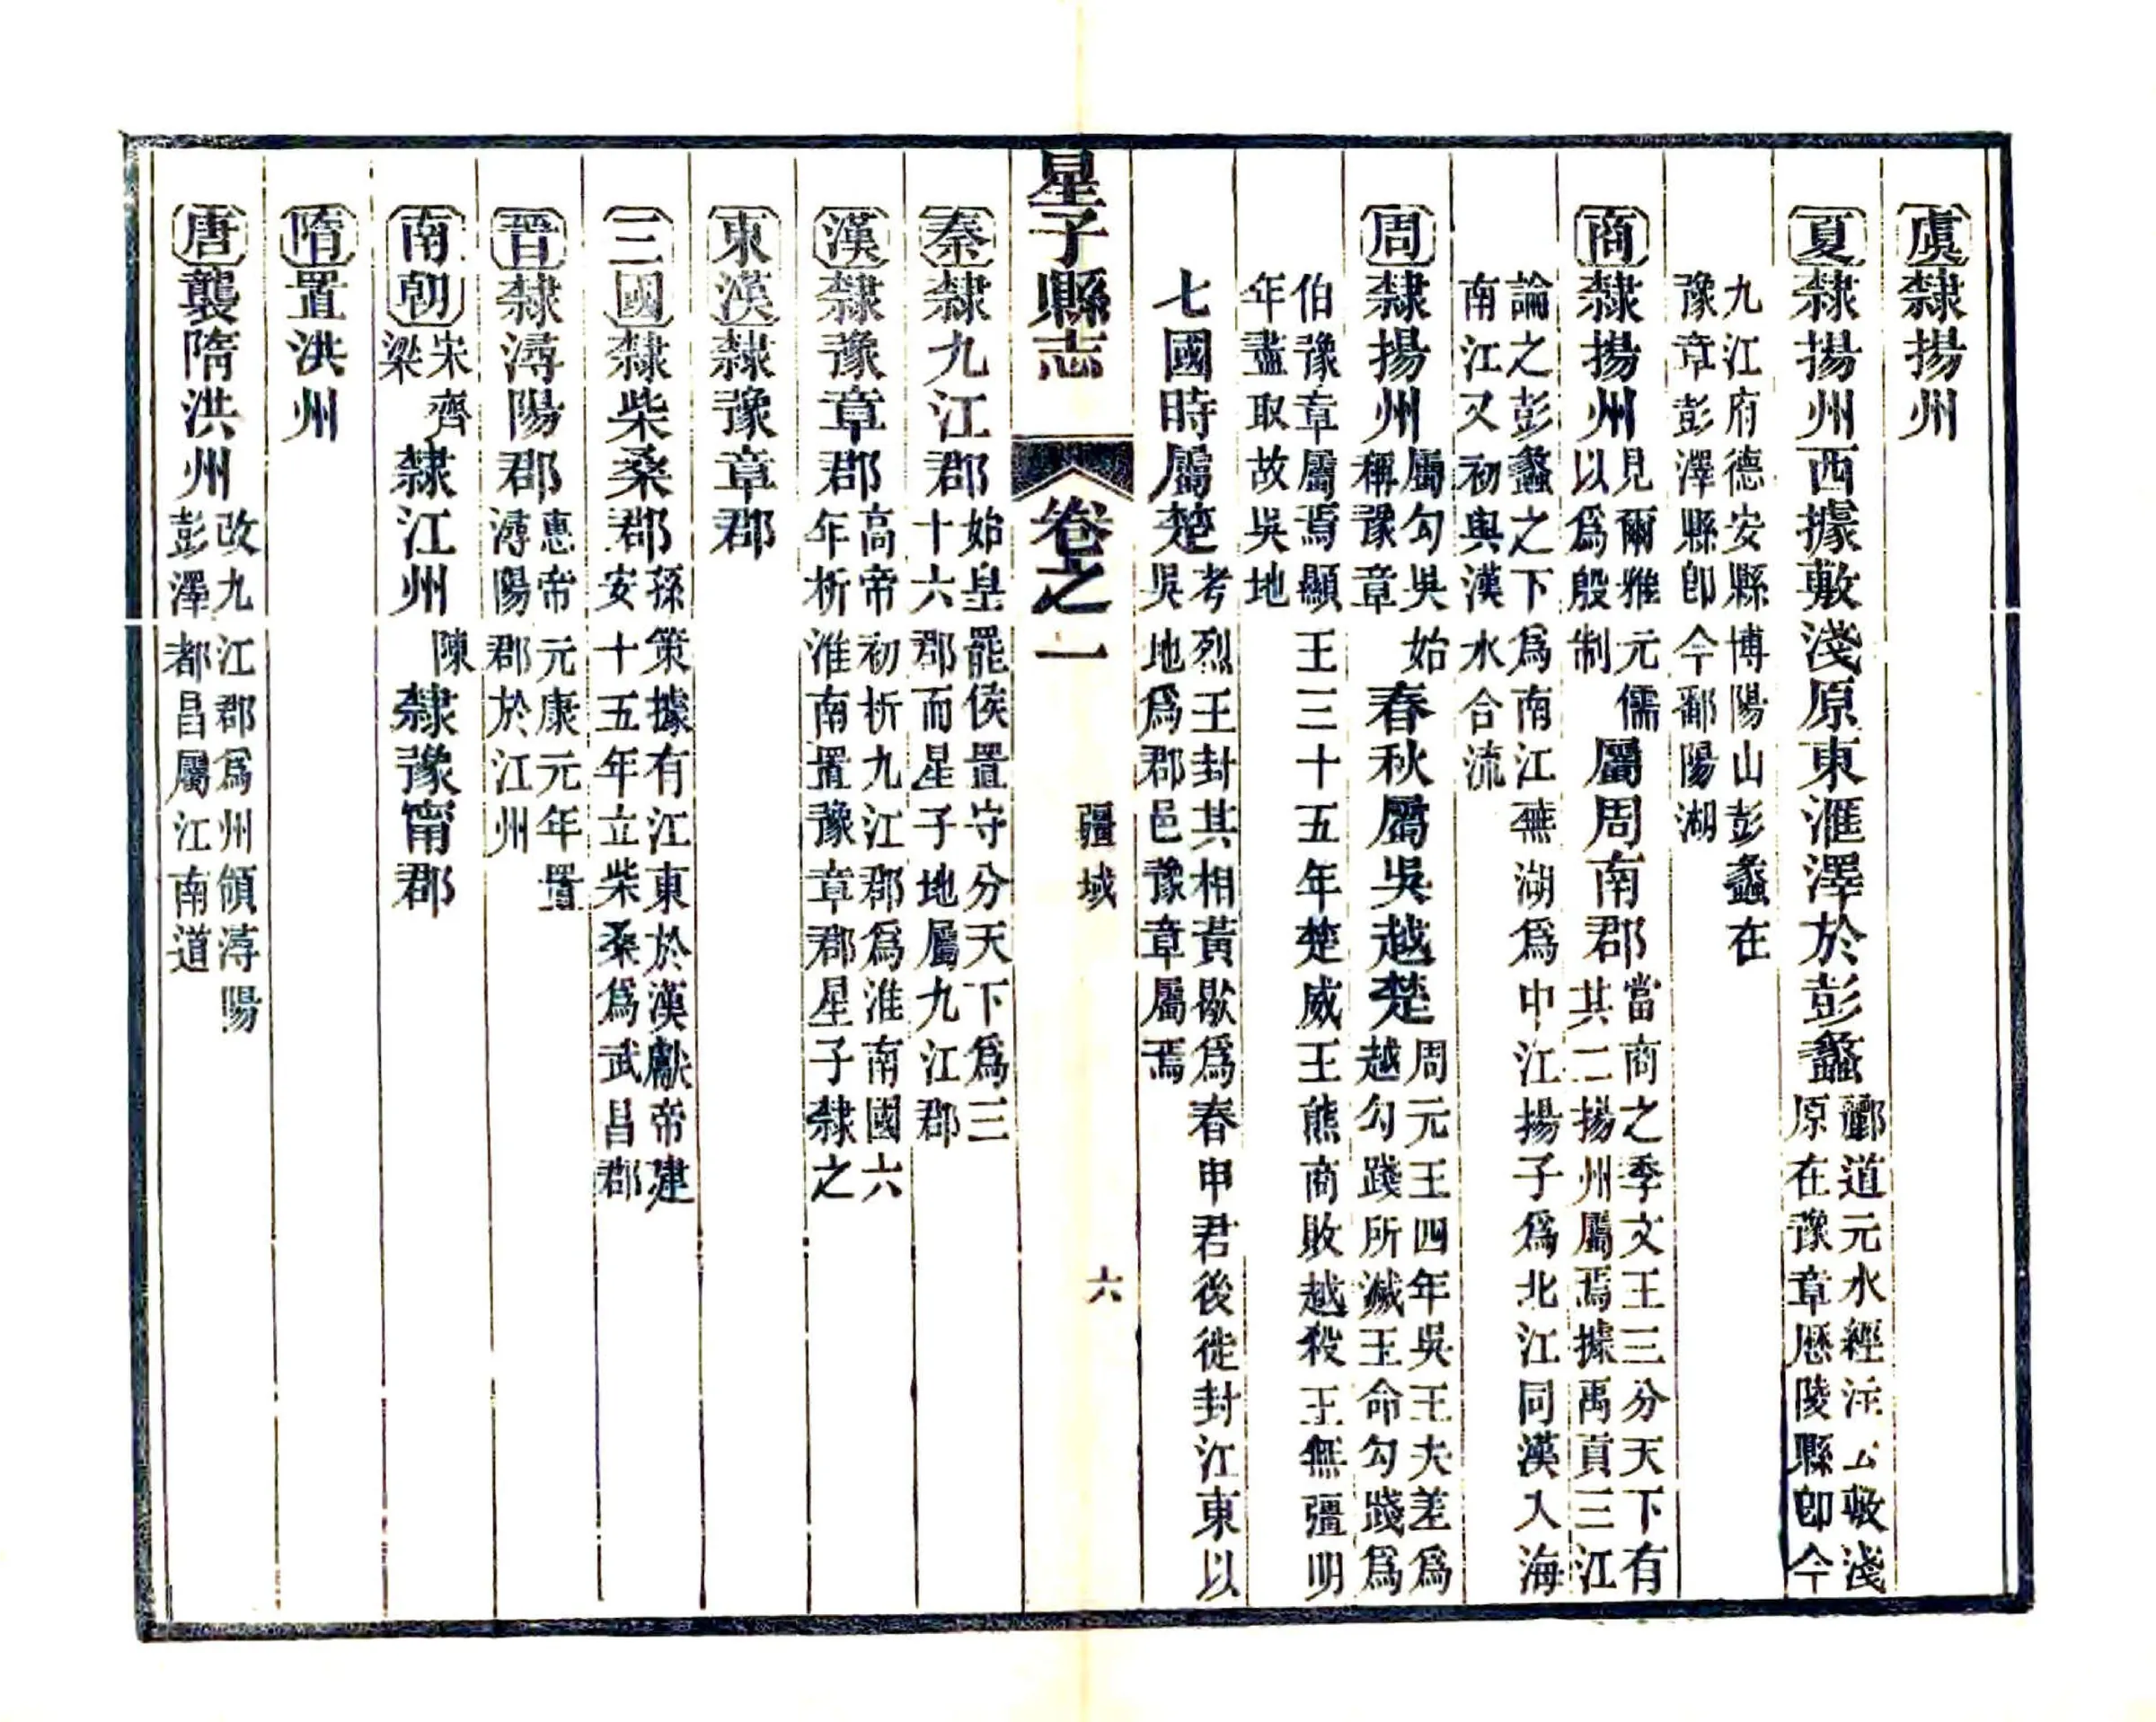 虞隸揚州
夏隸揚州西據敷淺原東滙澤於彭蠡酈道元水經注云敷淺
原在豫章歷陵縣卽今
九江府德安縣博陽山彭蠡在
豫章彭澤縣卽今鄱陽湖
商隸揚州見爾雅元儒
以爲殷制
屬周南郡當商之季文王三分天下有
其二揚州屬焉據禹貢三江
論之彭蠡之下爲南江蕪湖爲中江揚子爲北江同漢入海
南江又初與漢水合流
周隸揚州屬勾吳始
稱豫章
春秋屬吳越楚周元王四年吳王夫差爲
越勾踐所滅王命勾踐爲
伯豫章屬焉顯王三十五年楚威王熊商敗越殺王無疆明
年盡取故吳地
七國時屬楚考烈王封其相黃歇爲春申君後徙封江東以
吳地爲郡邑豫章屬焉
星子縣志 卷之一 疆域 六
秦隸九江郡始皇罷侯置守分天下爲三
十六郡而星子地屬九江郡
漢隸豫章郡高帝初析九江郡爲淮南國六
年析淮南置豫章郡星子隸之
東漢隸豫章郡
三國隸柴桑郡孫策據有江東於漢獻帝建
安十五年立柴桑爲武昌郡
晉隸潯陽郡惠帝元康元年置
潯陽郡於江州
南朝宋齊
梁
隸江州陳隸豫甯郡
隋置洪州
唐襲隋洪州改九江郡爲州領潯陽
彭澤都昌屬江南道